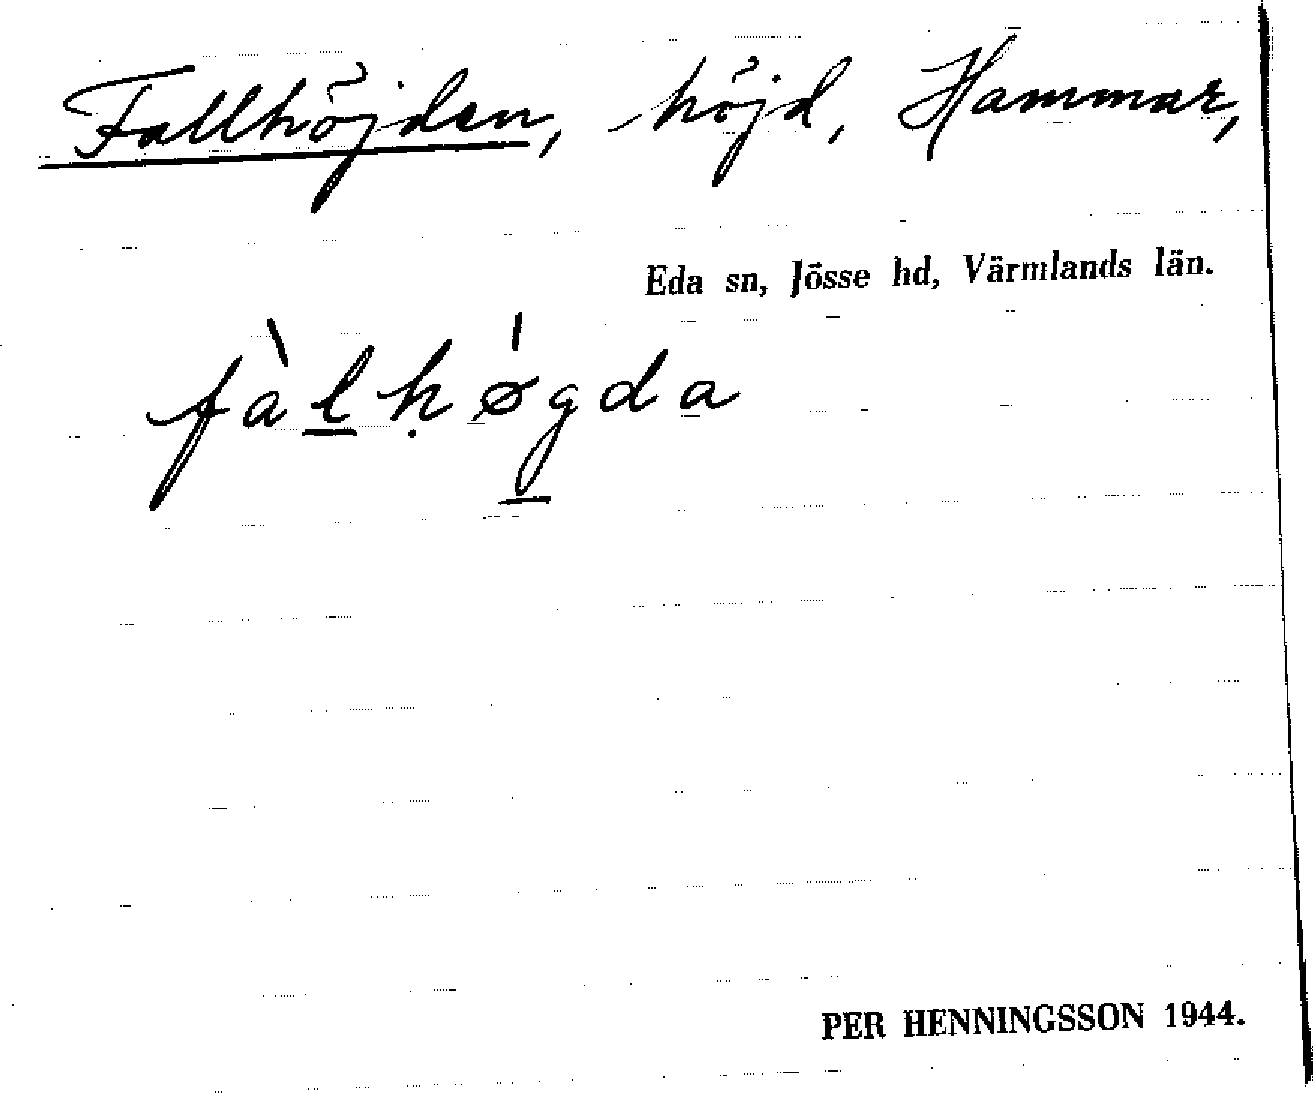 Fallhöjden, höjd, Hammar,
Eda sn, Jösse hd, Värmlands län.
fàl̲ḥǿg̲da
PER HENNINGSSON 1944.